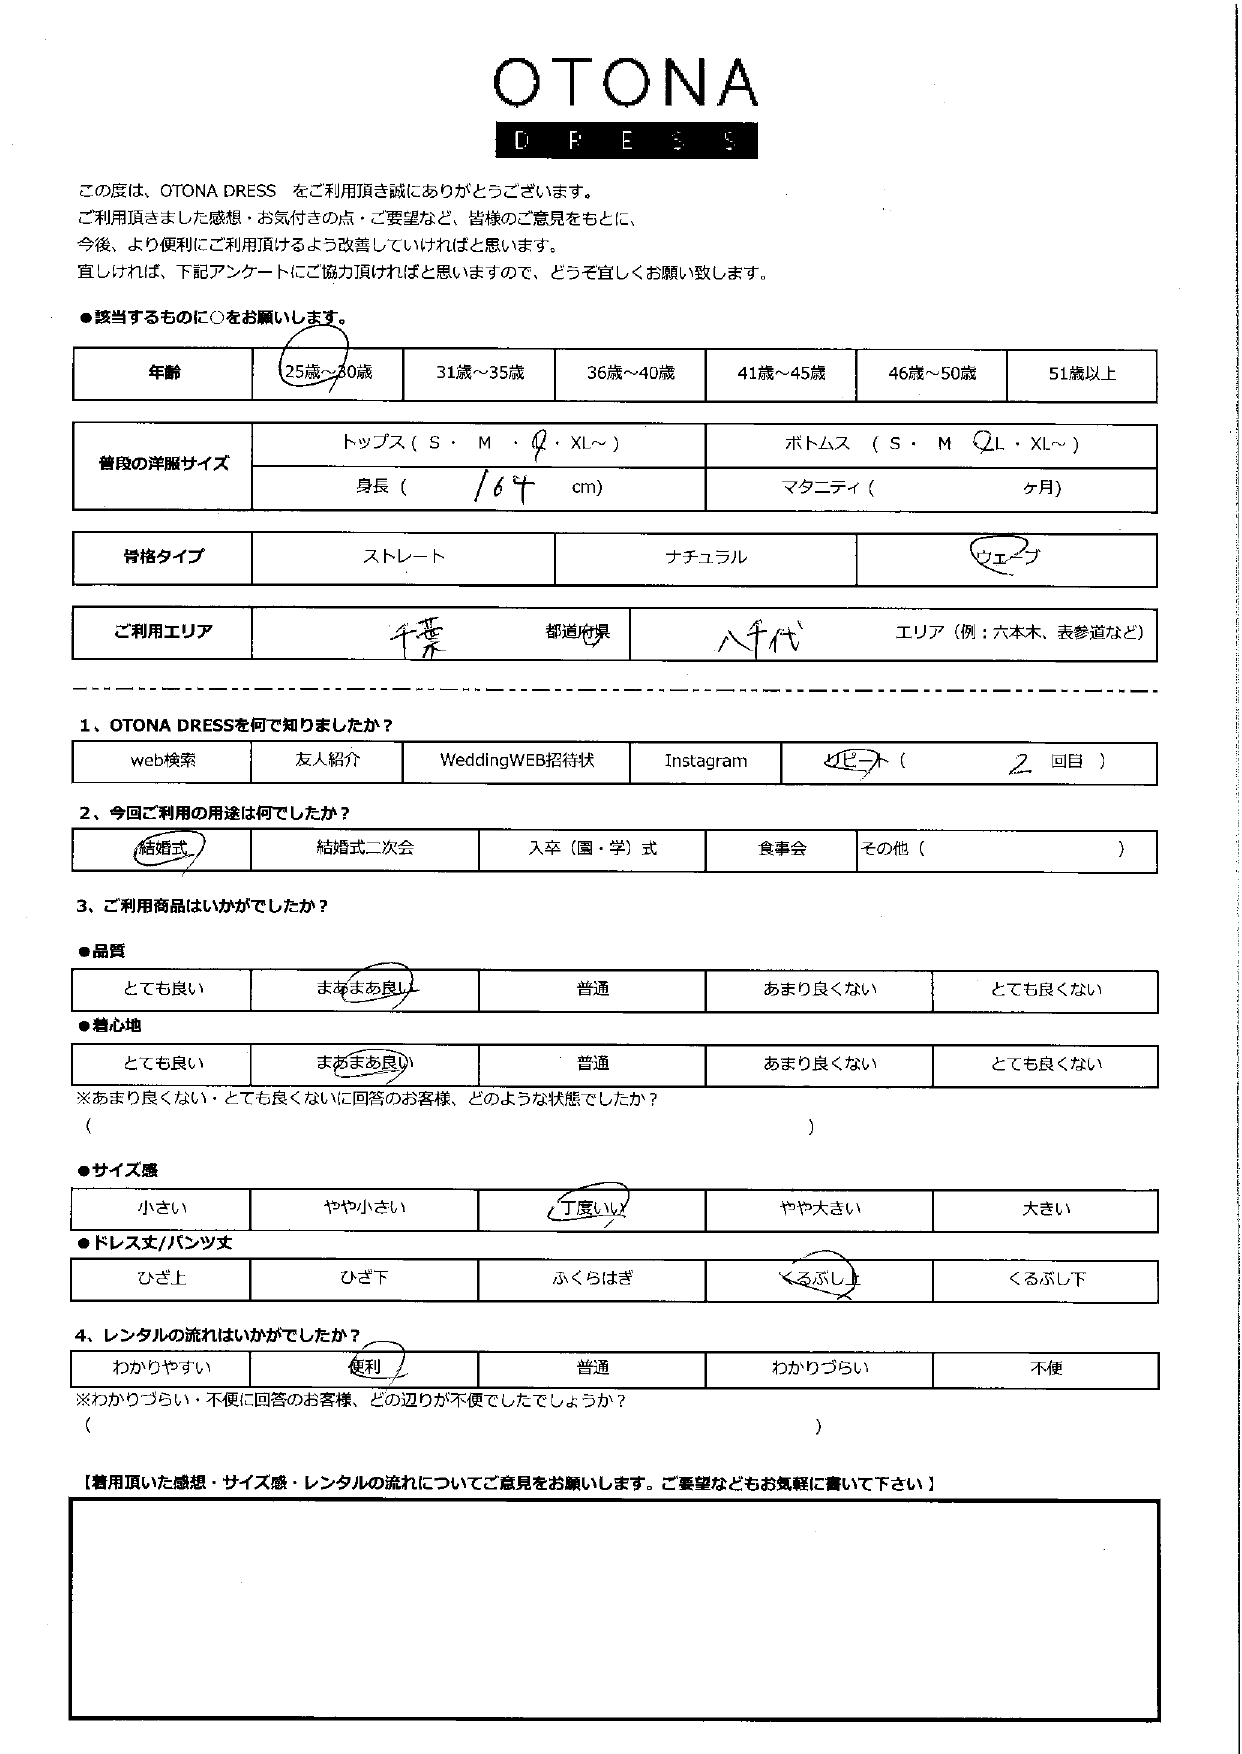 OTONA
DRESS
この度は、OTONA DRESS　をご利用頂き誠にありがとうございます。
ご利用頂きました感想・お気付きの点・ご要望など、皆様のご意見をもとに、
今後、より便利にご利用頂けるよう改善していければと思います。
宜しければ、下記アンケートにご協力頂ければと思いますので、どうぞ宜しくお願い致します。
●該当するものに○をお願いします。
年齢 25歳～30歳 31歳～35歳 36歳～40歳 41歳～45歳 46歳～50歳 51歳以上
普段の洋服サイズ トップス ( S ・ M ・ L ・ XL～ ) ボトムス ( S ・ M L ・ XL～ )
身長 ( 164 cm) マタニティ ( ヶ月)
骨格タイプ ストレート ナチュラル ウェーブ
ご利用エリア 千葉 都道府県 八千代 エリア（例：六本木、表参道など）
1、OTONA DRESSを何で知りましたか？
web検索 友人紹介 WeddingWEB招待状 Instagram リピート ( 2 回目 )
2、今回ご利用の用途は何でしたか？
結婚式 結婚式二次会 入卒（園・学）式 食事会 その他 ( )
3、ご利用商品はいかがでしたか？
●品質
とても良い まあまあ良い 普通 あまり良くない とても良くない
●着心地
とても良い まあまあ良い 普通 あまり良くない とても良くない
※あまり良くない・とても良くないに回答のお客様、どのような状態でしたか？
( )
●サイズ感
小さい やや小さい 丁度いい やや大きい 大きい
●ドレス丈/パンツ丈
ひざ上 ひざ下 ふくらはぎ くるぶし上 くるぶし下
4、レンタルの流れはいかがでしたか？
わかりやすい 便利 普通 わかりづらい 不便
※わかりづらい・不便に回答のお客様、どの辺りが不便でしたでしょうか？
( )
【着用頂いた感想・サイズ感・レンタルの流れについてご意見をお願いします。ご要望などもお気軽に書いて下さい 】